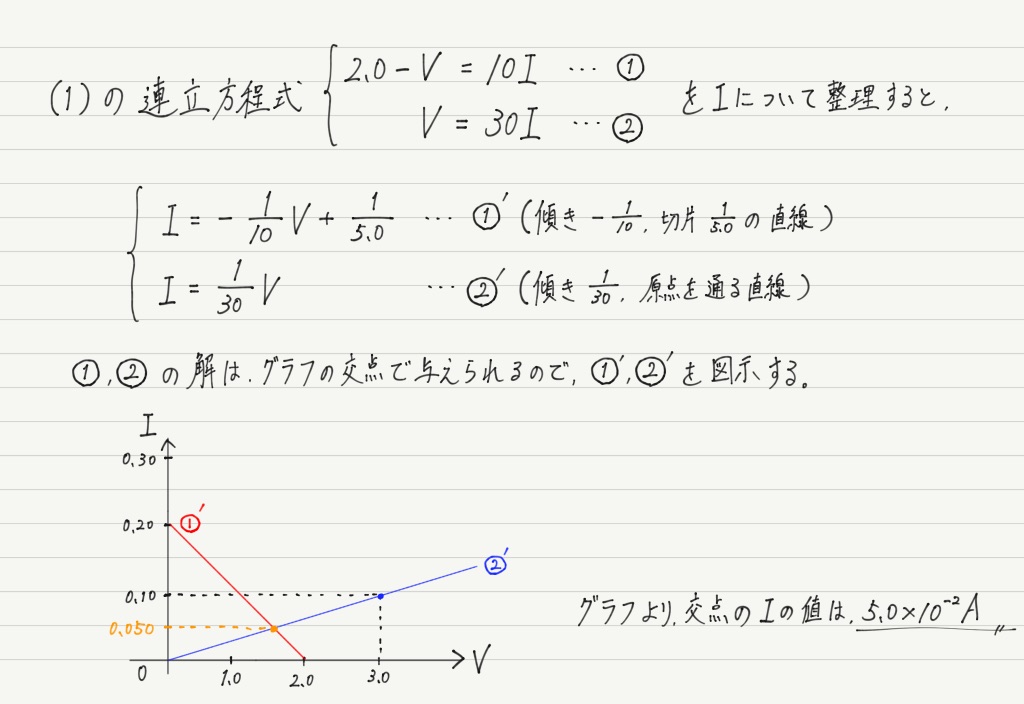 (1)の連立方程式 { 2.0 - V = 10I … ① を I について整理すると,
V = 30I … ②
{ I = - 1/10 V + 1/5.0 … ①′ (傾き - 1/10, 切片 1/5.0 の直線)
I = 1/30 V … ②′ (傾き 1/30, 原点を通る直線)
①,②の解は,グラフの交点で与えられるので,①′,②′を図示する。
I
0.30
0.20 ①′
②′
0.10
0.050
グラフより,交点の I の値は, 5.0×10⁻² A
0 1.0 2.0 3.0 V